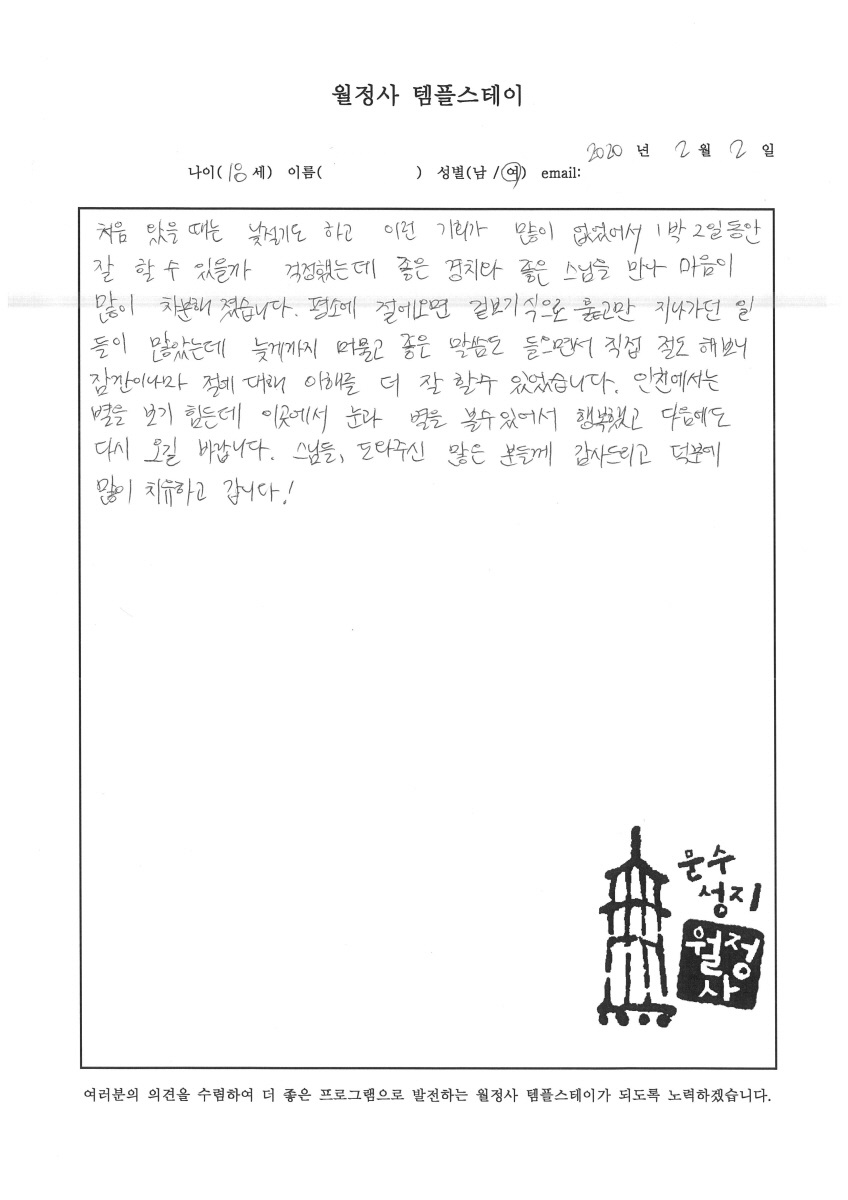 월정사 템플스테이
2020 년 2 월 2 일
나이( 18 세) 이름( ) 성별(남 /여) email:
처음 왔을 때는 낯설기도 하고 이런 기회가 많이 없었어서 1박 2일동안
잘 할 수 있을까 걱정했는데 좋은 경치와 좋은 스님들 만나 마음이
많이 차분해 졌습니다. 평소에 절에오면 겉보기식으로 훑고만 지나가던 일
들이 많았는데 늦게까지 머물고 좋은 말씀도 들으면서 직접 절도 해보니
잠깐이나마 절에 대해 이해를 더 잘 할수 있었습니다. 인천에서는
별을 보기 힘든데 이곳에서 눈과 별을 볼수있어서 행복했고 다음에도
다시 오길 바랍니다. 스님들, 도와주신 많은 분들께 감사드리고 덕분에
많이 치유하고 갑니다!
문수
성지
월정
사
여러분의 의견을 수렴하여 더 좋은 프로그램으로 발전하는 월정사 템플스테이가 되도록 노력하겠습니다.